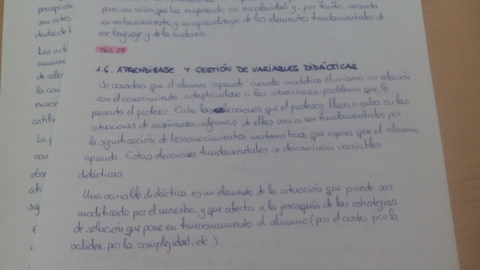 percepción
para un niño que ha empezado su escolaridad y, por tanto, necesita
con actos
un entrenamiento y un aprendizaje de los elementos fundamentales de
ese lenguaje y de la
1.6. APRENDIZAJE Y GESTIÓN DE VARIABLES DIDÁCTICAS
Las acti
Se considera que el alumno "aprende" cuando modifica él mismo su relación
con el conocimiento, adaptándose a las situaciones-problema que le
de
presenta el profesor. Entre las elecciones que el profesor lleva a cabo en las
la
situaciones de enseñanza, algunas de ellas van a ser fundamentales por
la significación de los conocimientos matemáticos que espera que el alumno
La p
aprenda. Estas elecciones fundamentales se denominan variables
didácticas.
Una variable didáctica es un elemento de la situación que puede ser
modificado por el maestro, y que afecta a la jerarquía de las estrategias
de solución que pone en funcionamiento el alumno (por el costo, por la
validez, por la complejidad, etc.).